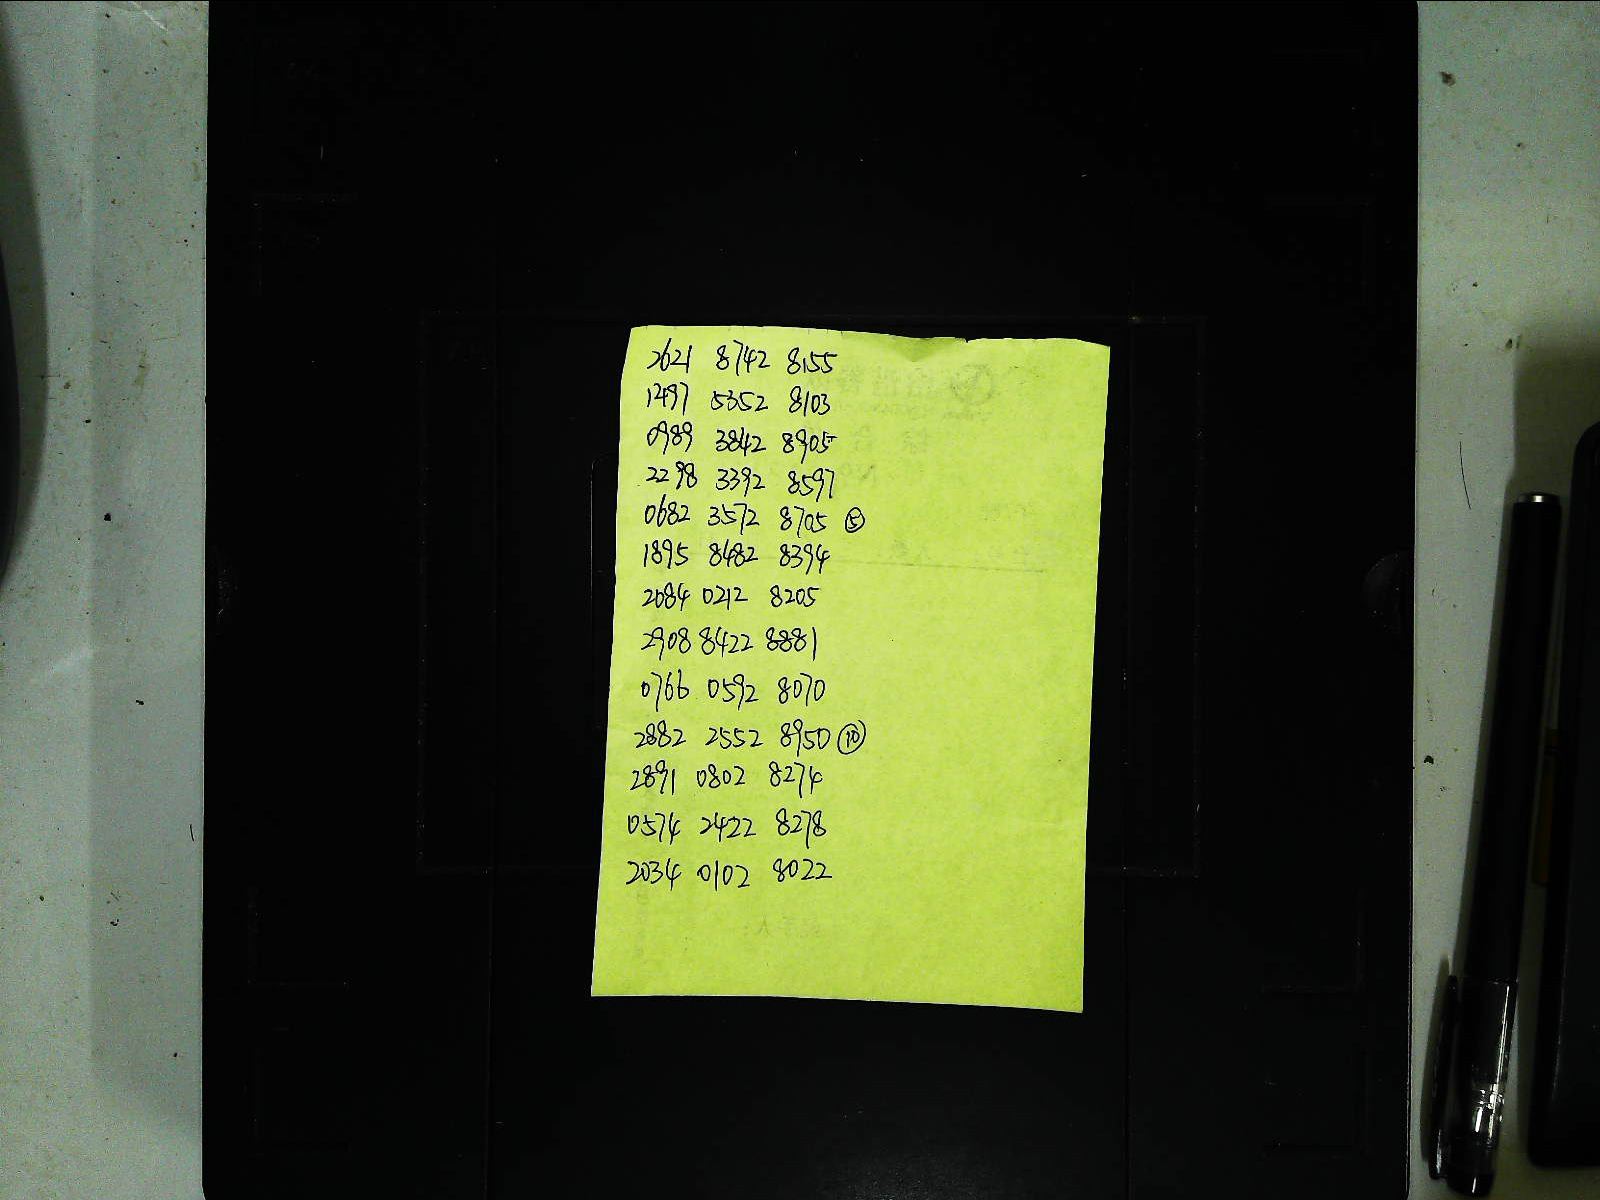 2621 8742 8155
1297 5352 8103
0989 3842 8905
2298 3392 8597
0682 3572 8705 ⑤
1895 8482 8394
2084 0212 8205
2908 8422 8881
0766 0592 8070
2882 2552 8950 ⑩
2891 0802 8274
0574 2422 8278
2034 0102 8022